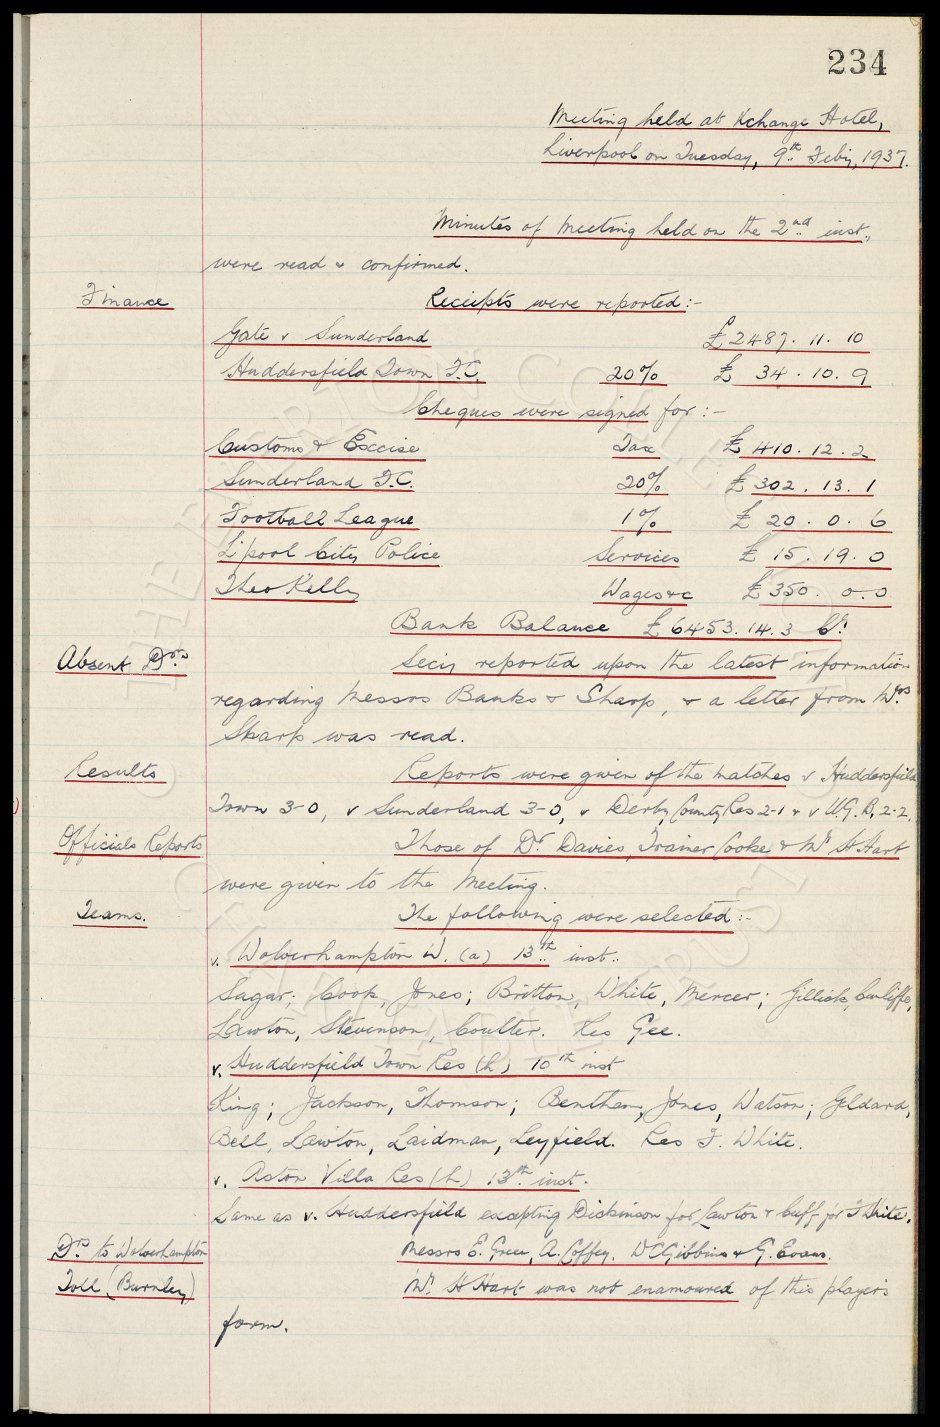 234
Meeting held at Xchange Hotel,
Liverpool on Tuesday, 9th Feby, 1937.
Minutes of Meeting held on the 2nd inst.,
were read & confirmed.
Finance Receipts were reported:-
Gate v Sunderland £2487. 11. 10
Huddersfield Town F.C. 20% £ 34. 10. 9
Cheques were signed for:-
Customs & Excise Tax £ 410. 12. 2
Sunderland F.C. 20% £ 302. 13. 1
Football League 1% £ 20. 0. 6
L'pool City Police Services £ 15. 19. 0
Theo Kelly Wages &c £ 350. 0. 0
Bank Balance £6453. 14. 3 Cr.
Absent Drs. Secy reported upon the latest information
regarding Messrs Banks & Sharp, & a letter from Mrs
Sharp was read.
Results Reports were given of the matches v Huddersfield
Town 3-0, v Sunderland 3-0, v Derby County Res 2-1 & v U.G.B. 2-2.
Officials Reports Those of Dr. Davies, Trainer Cooke & Mr H Hart
were given to the Meeting.
Teams. The following were selected:-
v. Wolverhampton W. (a) 13th inst:.
Sagar; Cook, Jones; Britton, White, Mercer; Gillick, Cunliffe,
Lawton, Stevenson, Coulter. Res Gee.
v. Huddersfield Town Res (h) 10th inst
King; Jackson, Thomson; Bentham, Jones, Watson; Geldard,
Bell, Lawton, Laidman, Leyfield. Res F. White.
v. Aston Villa Res (h) 13th inst.
Same as v. Huddersfield excepting Dickinson for Lawton & Cuff for T White.
Drs. to Wolverhampton Messrs E. Green, A. Coffey, W C Gibbins & G. Evans.
Toll (Burnley) Mr. H Hart was not enamoured of this player's
form.
THE EVERTON COLLECTION
CHARITABLE TRUST